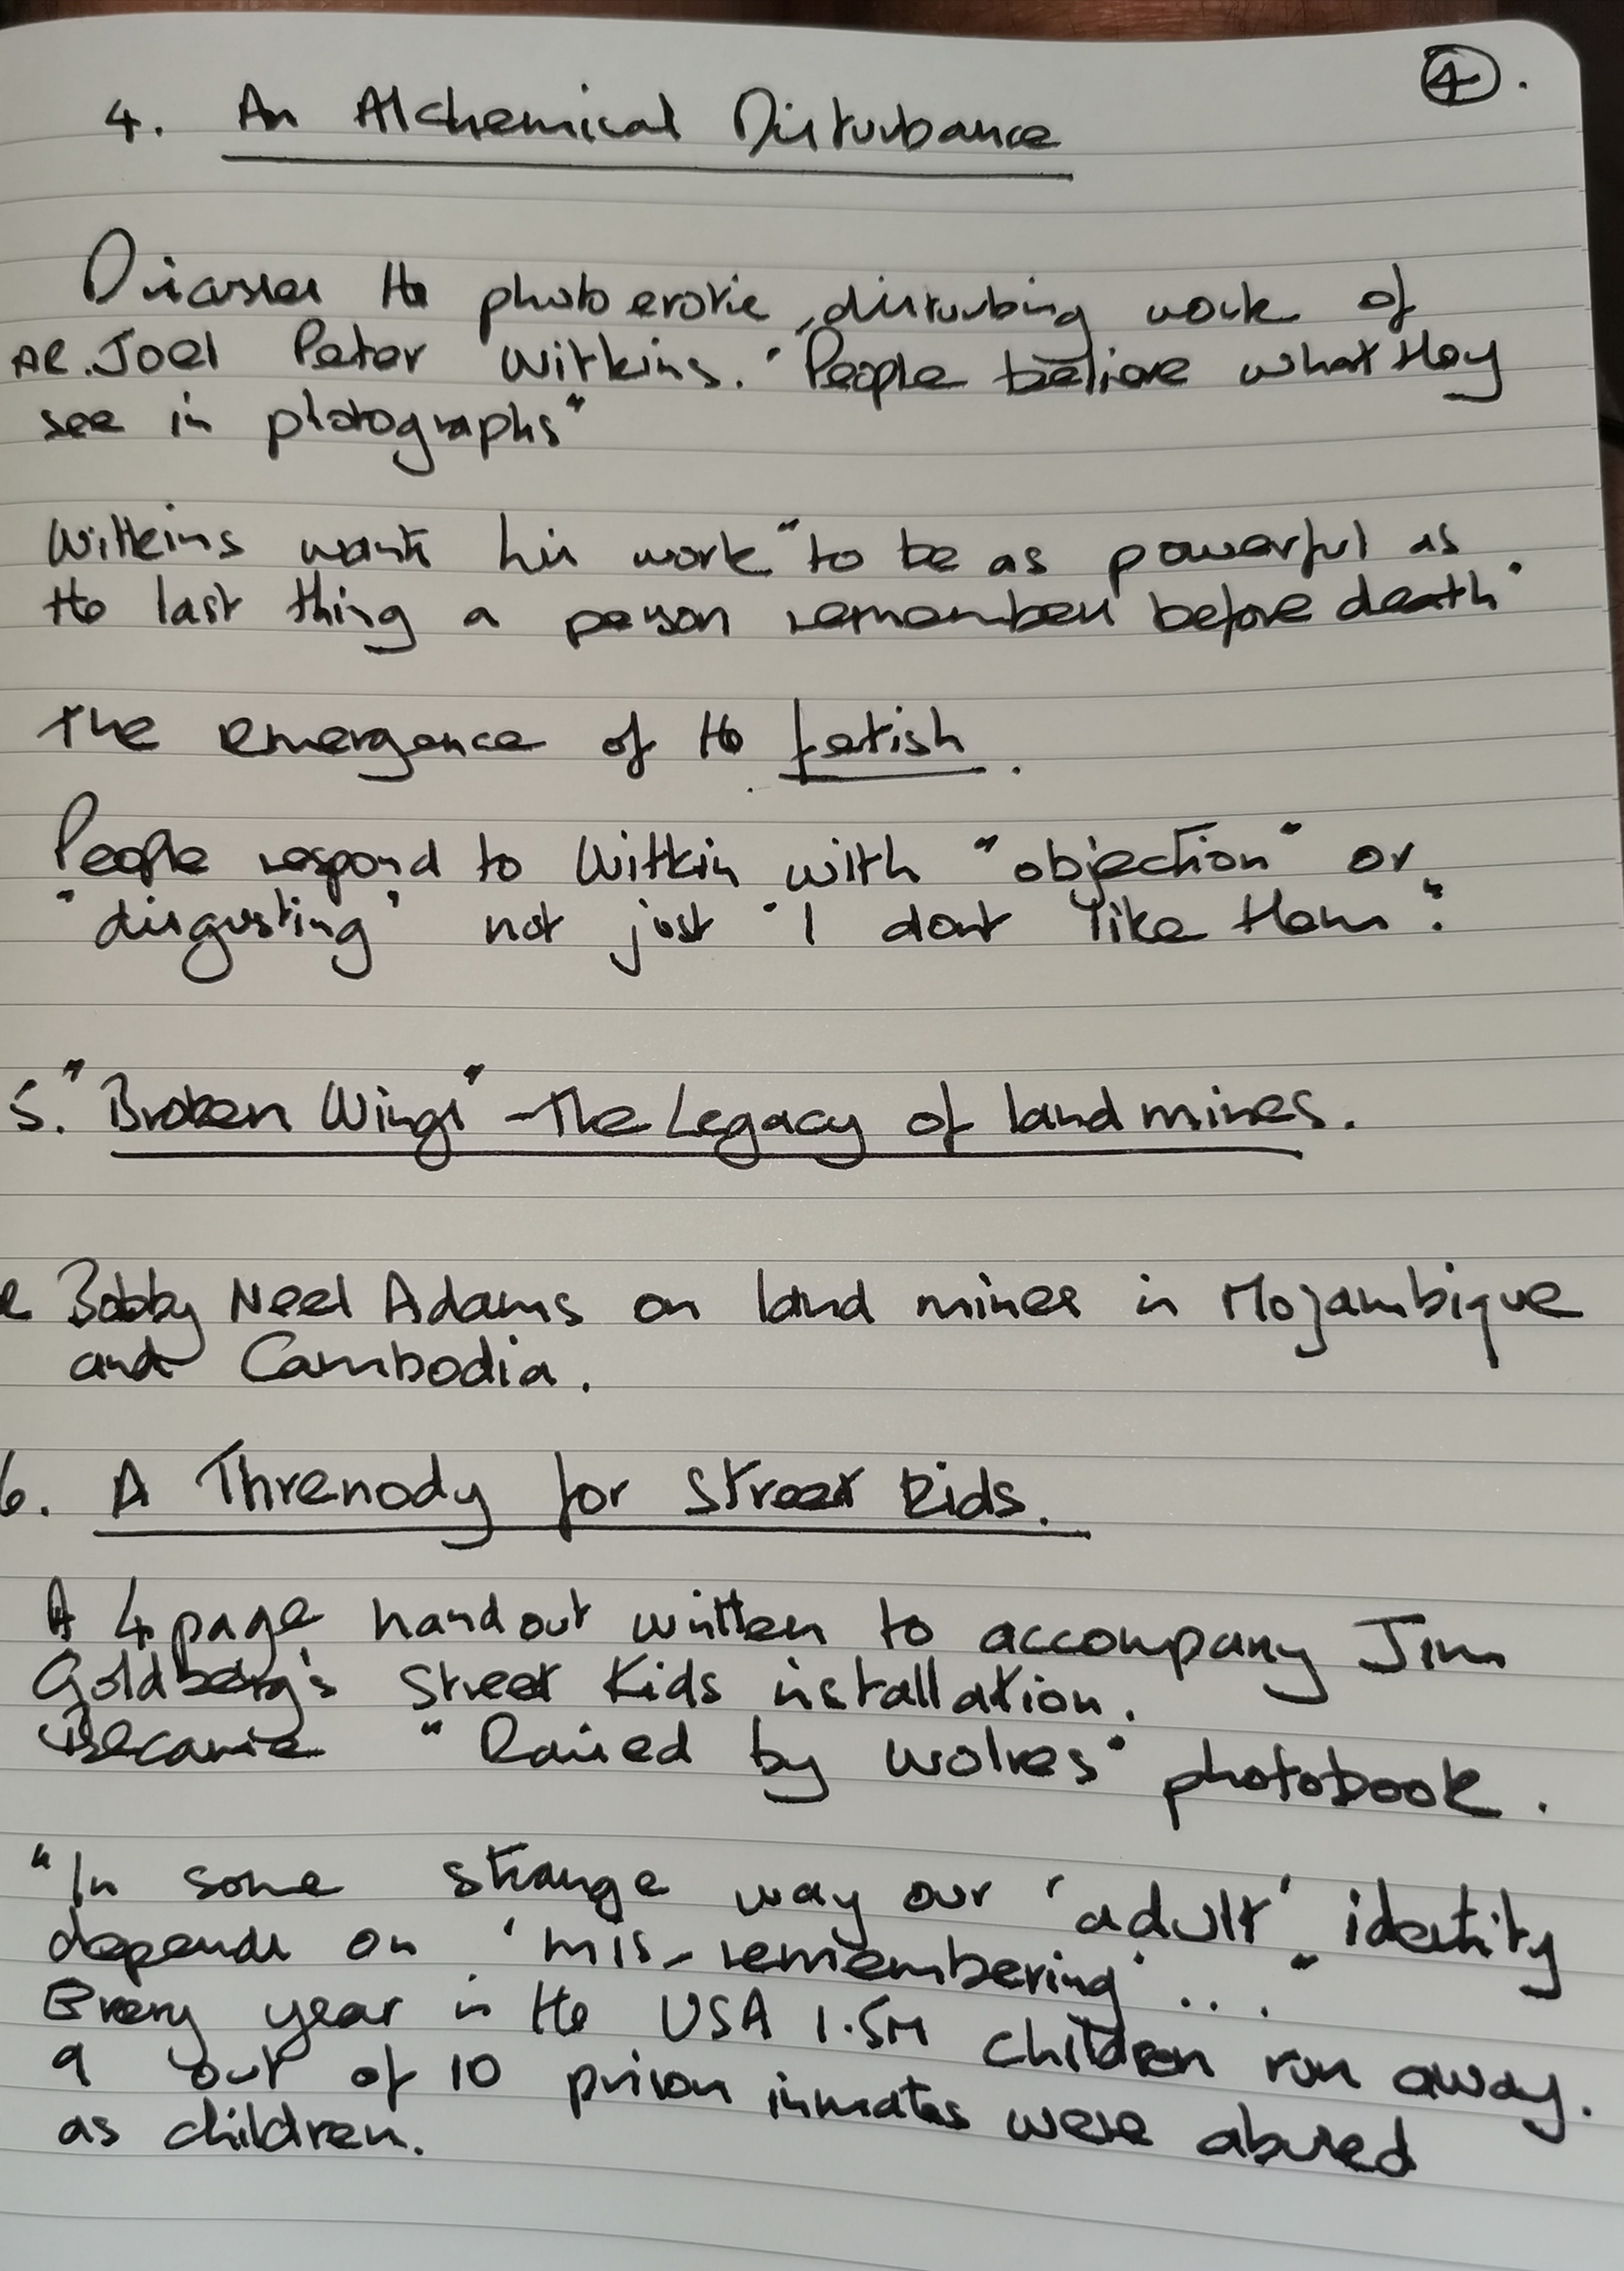 ④.
4. An Alchemical Disturbance
Discusses the photo erotic, disturbing work of
AR. Joel Peter Witkins. "People believe what they
see in photographs"
Witkins wants his work "to be as powerful as
the last thing a person remembers before death"
The emergence of the fetish.
People respond to Witkin with "objection" or
"disgusting" not just "I dont like them".
5. "Broken Wings" - The Legacy of land mines.
Bobby Neel Adams on land mines in Mozambique
and Cambodia.
6. A Threnody for Street Kids.
A 4 page handout written to accompany Jim
Goldberg's Street Kids installation.
Became "Raised by wolves" photobook.
"In some strange way our 'adult' identity
depends on 'mis-remembering' ... "
Every year in the USA 1.5M children run away.
9 out of 10 prison inmates were abused
as children.